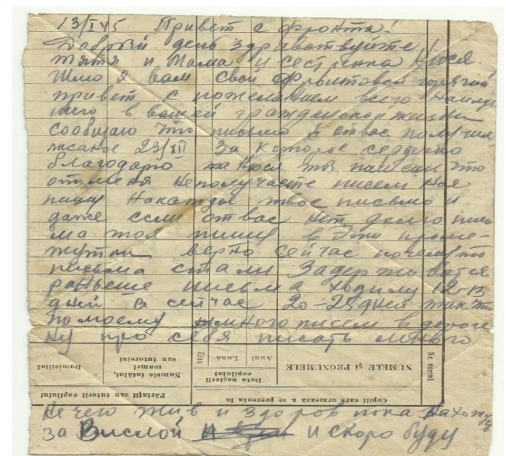 13/I 45 Привет с фронта!
Добрый день здравствуйте
тятя и Мама и сестренка Нюся.
Шлю я вам свой фронтовой горячий
привет с пожеланием всего наилуч
шего в вашей гражданской жизни
сообщаю что письмо я от вас получил
писаное 23/XII за которое сердечно
благодарю Нюся ты пишеш что
от меня неполучаете писем но я
пишу на каждое твое письмо и
даже если от вас нет долго пись
ма тоя пишу в эти проме-
жутки верно сейчас почему то
письма стали задерживатся
раньше письма ходили 12-13
дней а сейчас 20-25 дней так что
помоему много писем в дороге
ну про себя писать много
Copiii care urmează a se prezenta în
Părinții sau tutorii copilului
Nr. curent
NUMELE ȘI PRONUMELE
Data nașterii copilului
Anul Luna Ziua
Numele tatălui, mamei sau tutorelui
Domiciliul
нечего жив и здоров пока нахожусь
за Вислой и скоро буду